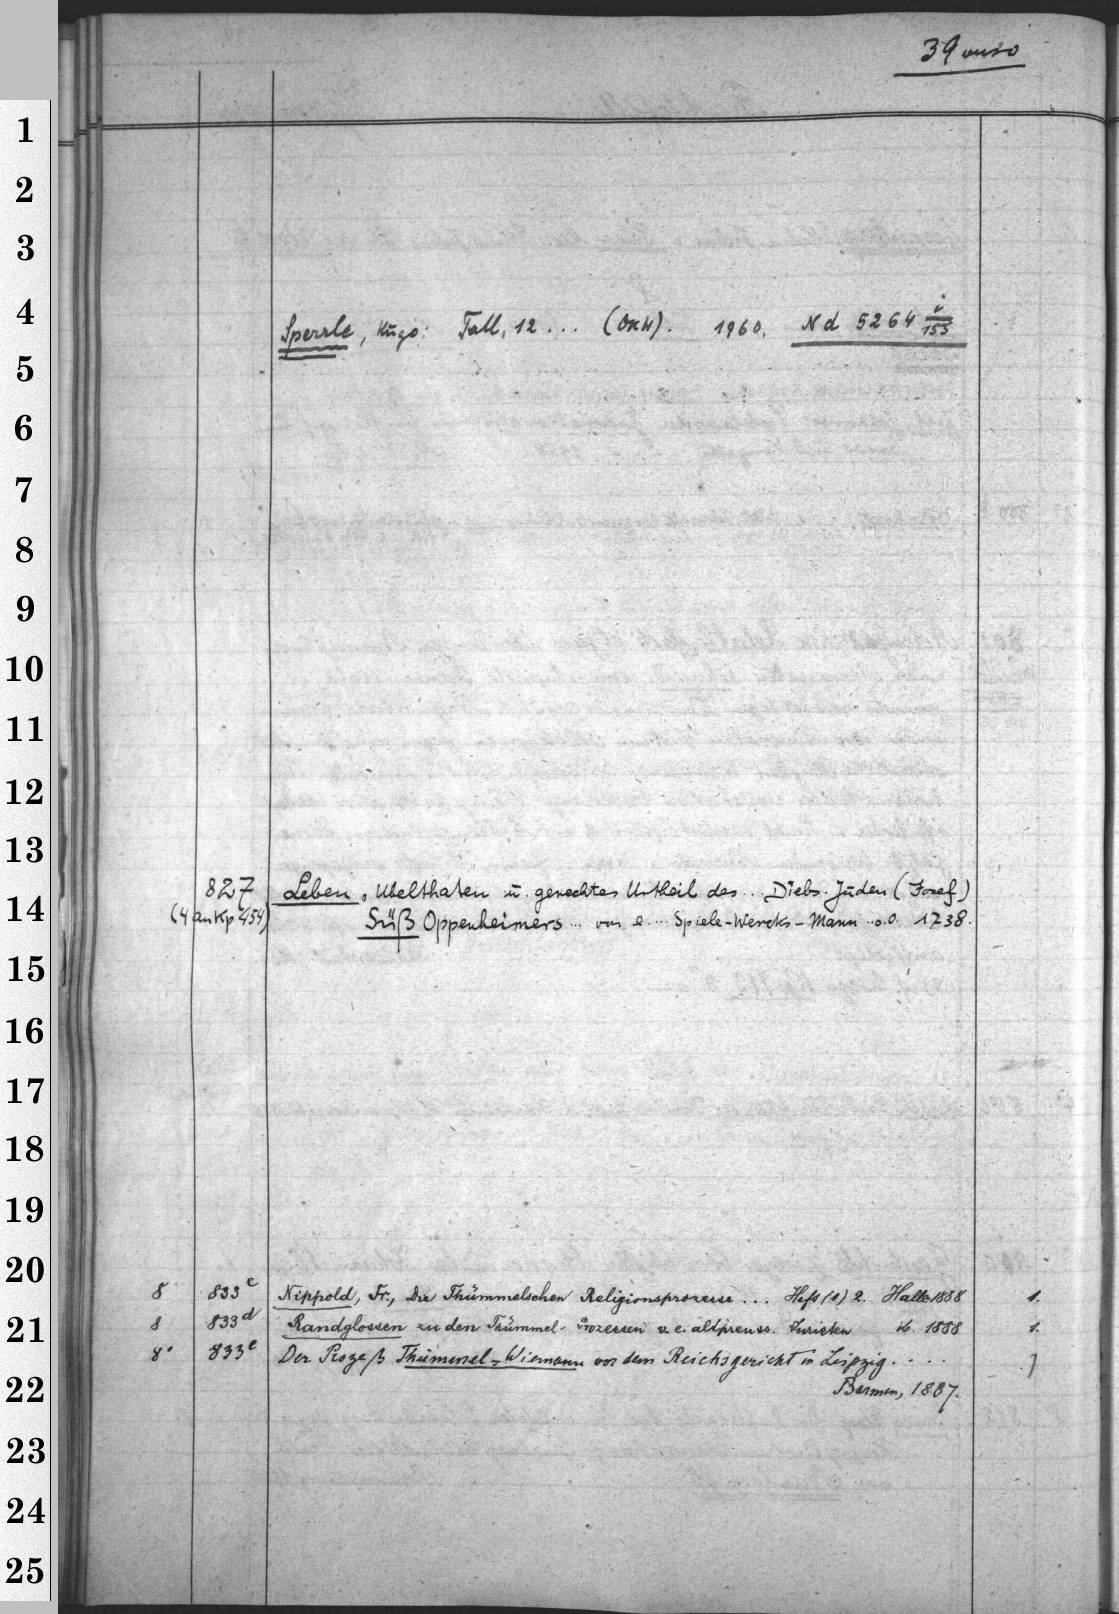 1
2
3
4
5
6
7
8
9
10
11
12
13
14
15
16
17
18
19
20
21
22
23
24
25
39 verso
Sperrle, Hugo: Fall, 12 ... (OKW). 1960. Nd 5264 i/155
827 Leben, Uebelthaten u. gerechtes Urtheil des ... Diebs. Juden (Josef)
(4 an Kp 454) Süß Oppenheimers ... von e. ... Spiele-Wercks-Mann ... o.O. 1738.
8 833c Nippold, Fr., Die Thümmelschen Religionsprozesse ... Heft (1) 2. Halle 1888 1.
8 833d Randglossen zu den Thümmel-Prozessen v. e. altpreuss. Juristen ib. 1888 1.
8° 833e Der Prozeß Thümmel-Wiemann vor dem Reichsgericht in Leipzig. ... 1
Barmen, 1887.